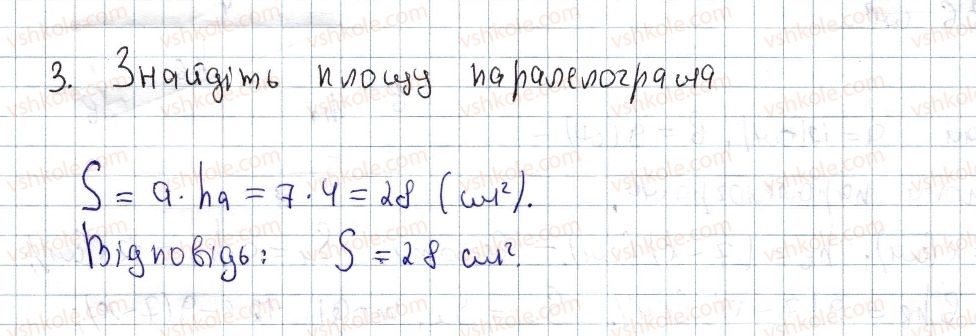 3. Знайдіть площу паралелограма
S = a · ha = 7 · 4 = 28 (см²).
Відповідь: S = 28 см².